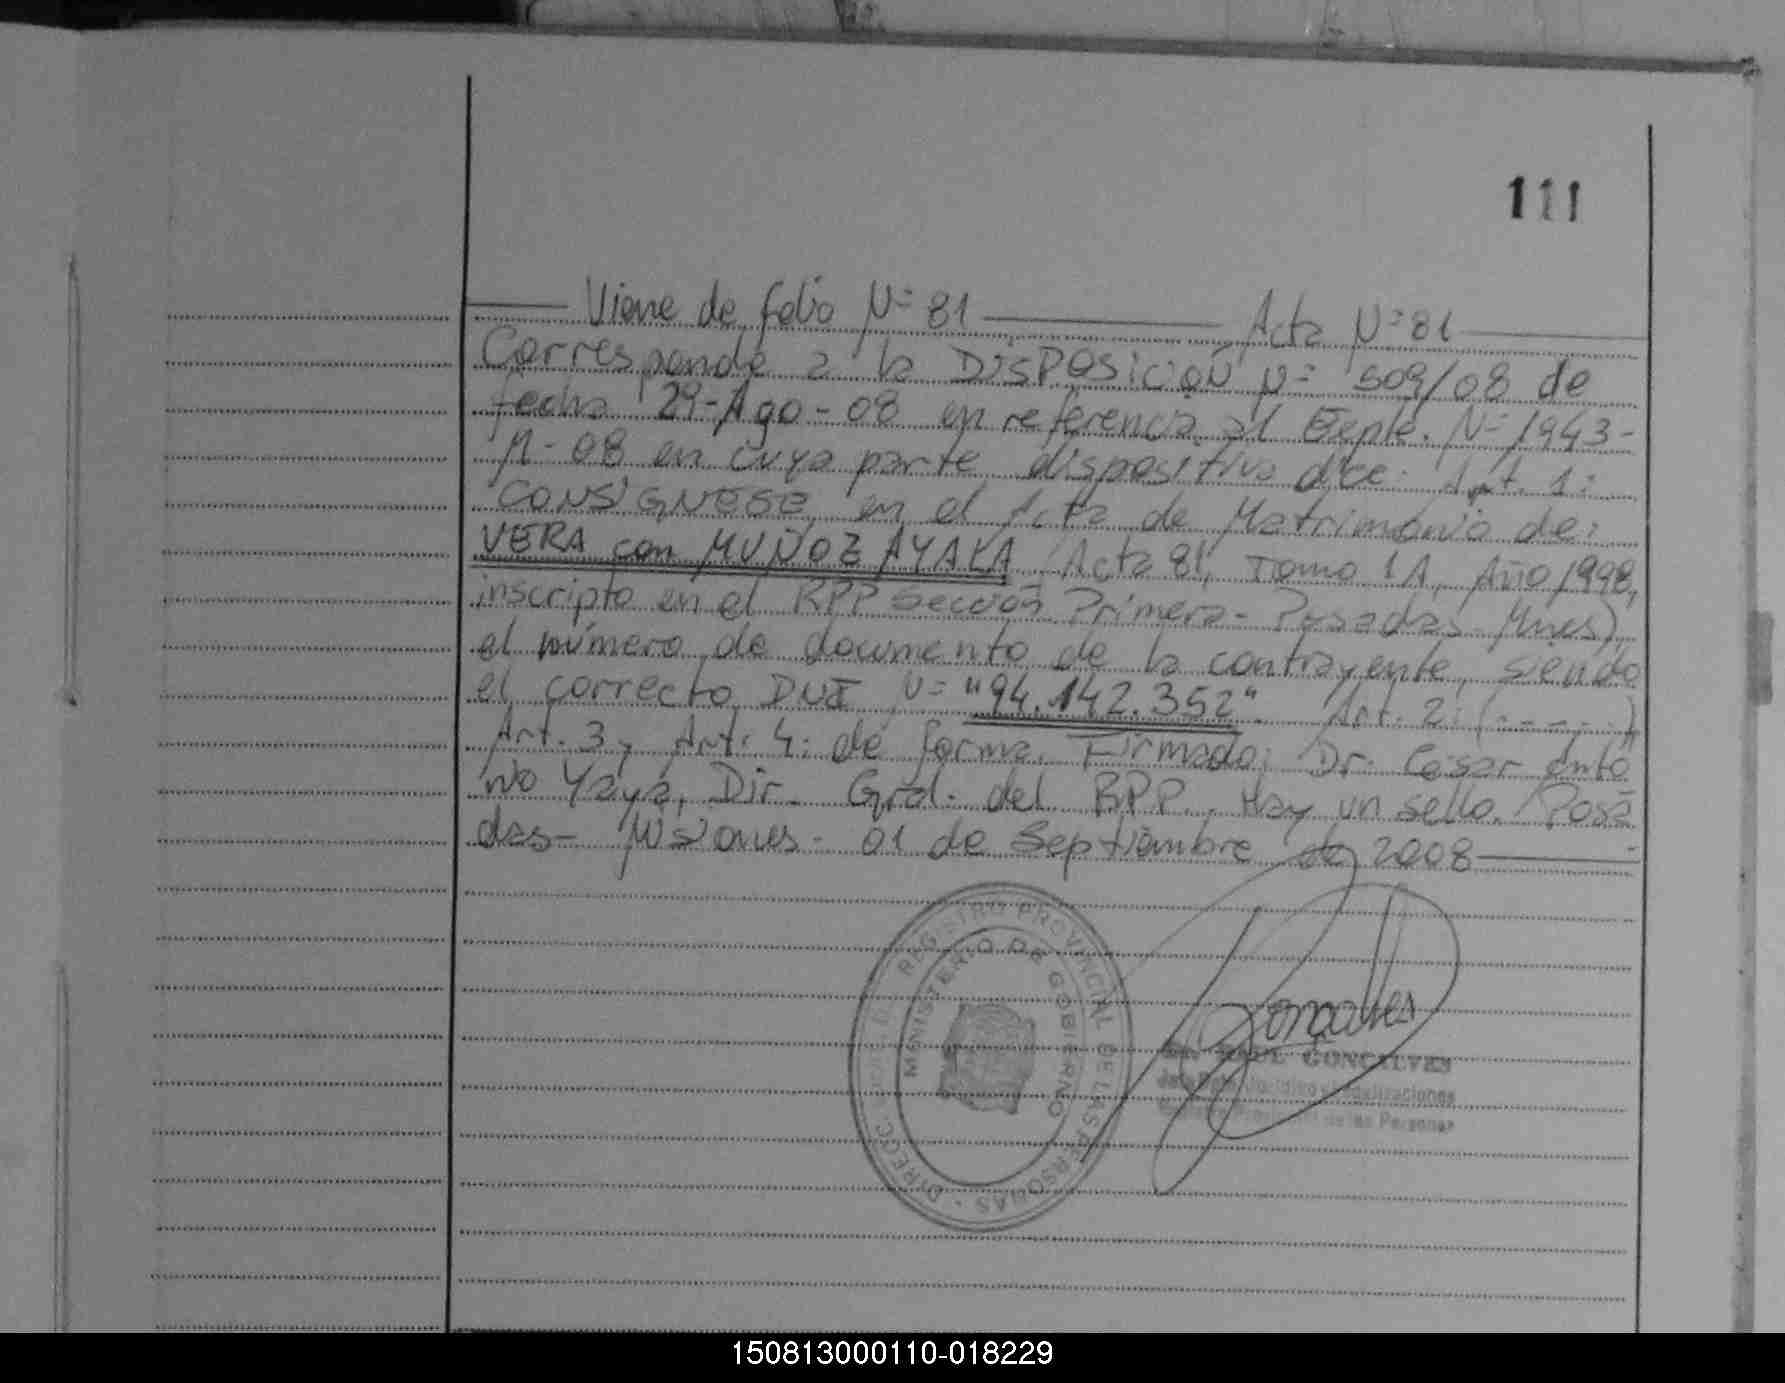 111
Viene de folio Nº 81 Acta Nº 81
Corresponde a la DISPOSICION Nº 509/08 de
fecha 29-Ago-08 en referencia al Expte. Nº 1943-
M-08 en cuya parte dispositiva dice: Art. 1:
CONSIGNESE en el Acta de Matrimonio de:
VERA con MUÑOZ AYALA, Acta 81, Tomo 1A, Año 1998,
inscripto en el RPP Sección Primera- Posadas- Mnes),
el número de documento de la contrayente, siendo
el correcto DNI Nº "94.142.352". Art. 2: (------)
Art. 3 y Art. 4: de forma. Firmado: Dr. Cesar Anto
nio Yaya, Dir. Gral. del RPP. Hay un sello. Posa
das- Misiones- 01 de Septiembre de 2008
DIRECC REGISTRO PROVINCIAL DE LAS PERSONAS
MINISTERIO DE GOBIERNO
GONCALVES
de las Personas
150813000110-018229